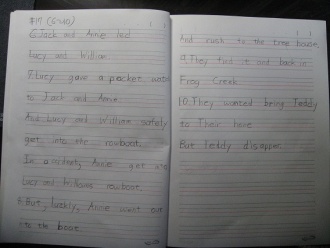 (6~10)
6. Jack and Annie led
Lucy and William.
7. Lucy gave a pocket watch
to Jack and Annie.
And Lucy and William safely
get into the rowboat.
In a minutes, Annie got
Lucy and Williams rowboat.
But, luckly, Annie went out
to the boat.
And rush to the tree house.
9. They find it and back in
Frog Creek.
10. They wanted bring Teddy
to Their here
But Teddy disapper.